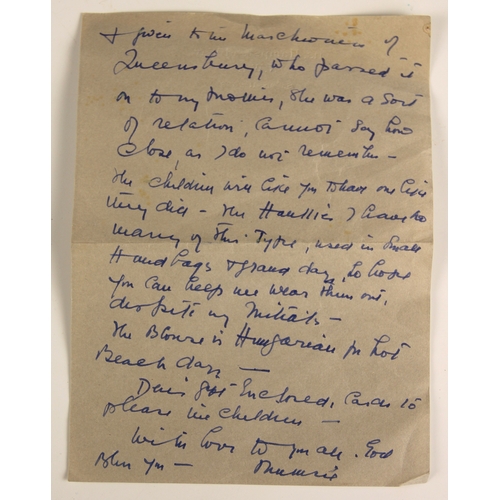 & given to the Marchioness of
Queensbury, who passed it
on to my Mother, she was a sort
of relation, cannot say how
close, as I do not remember -
The children will like you to have one like
they did - The Hankies I have too
many of this type, used in small
Handbags & grand days, so hope
you can help me wear them out,
despite my initials -
The Blouse is Hungarian for hot
Beach days -
Denis' gift Enclosed, Cards to
please the children -
With love to you all. God
Bless you -